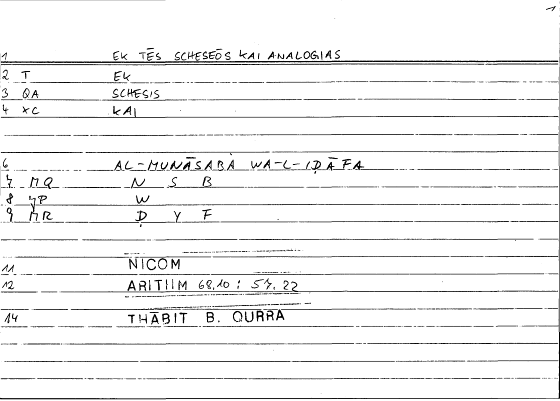 1 EK TĒS SCHESEŌS KAI ANALOGIAS
2 T EK
3 QA SCHESIS
4 XC KAI
6 AL-MUNĀSABA WA-L-IḌĀFA
7 MQ N S B
8 YP W
9 MR Ḍ Y F
11 NICOM
12 ARITIIM 68,10 : 54,22
14 THĀBIT B. QURRA